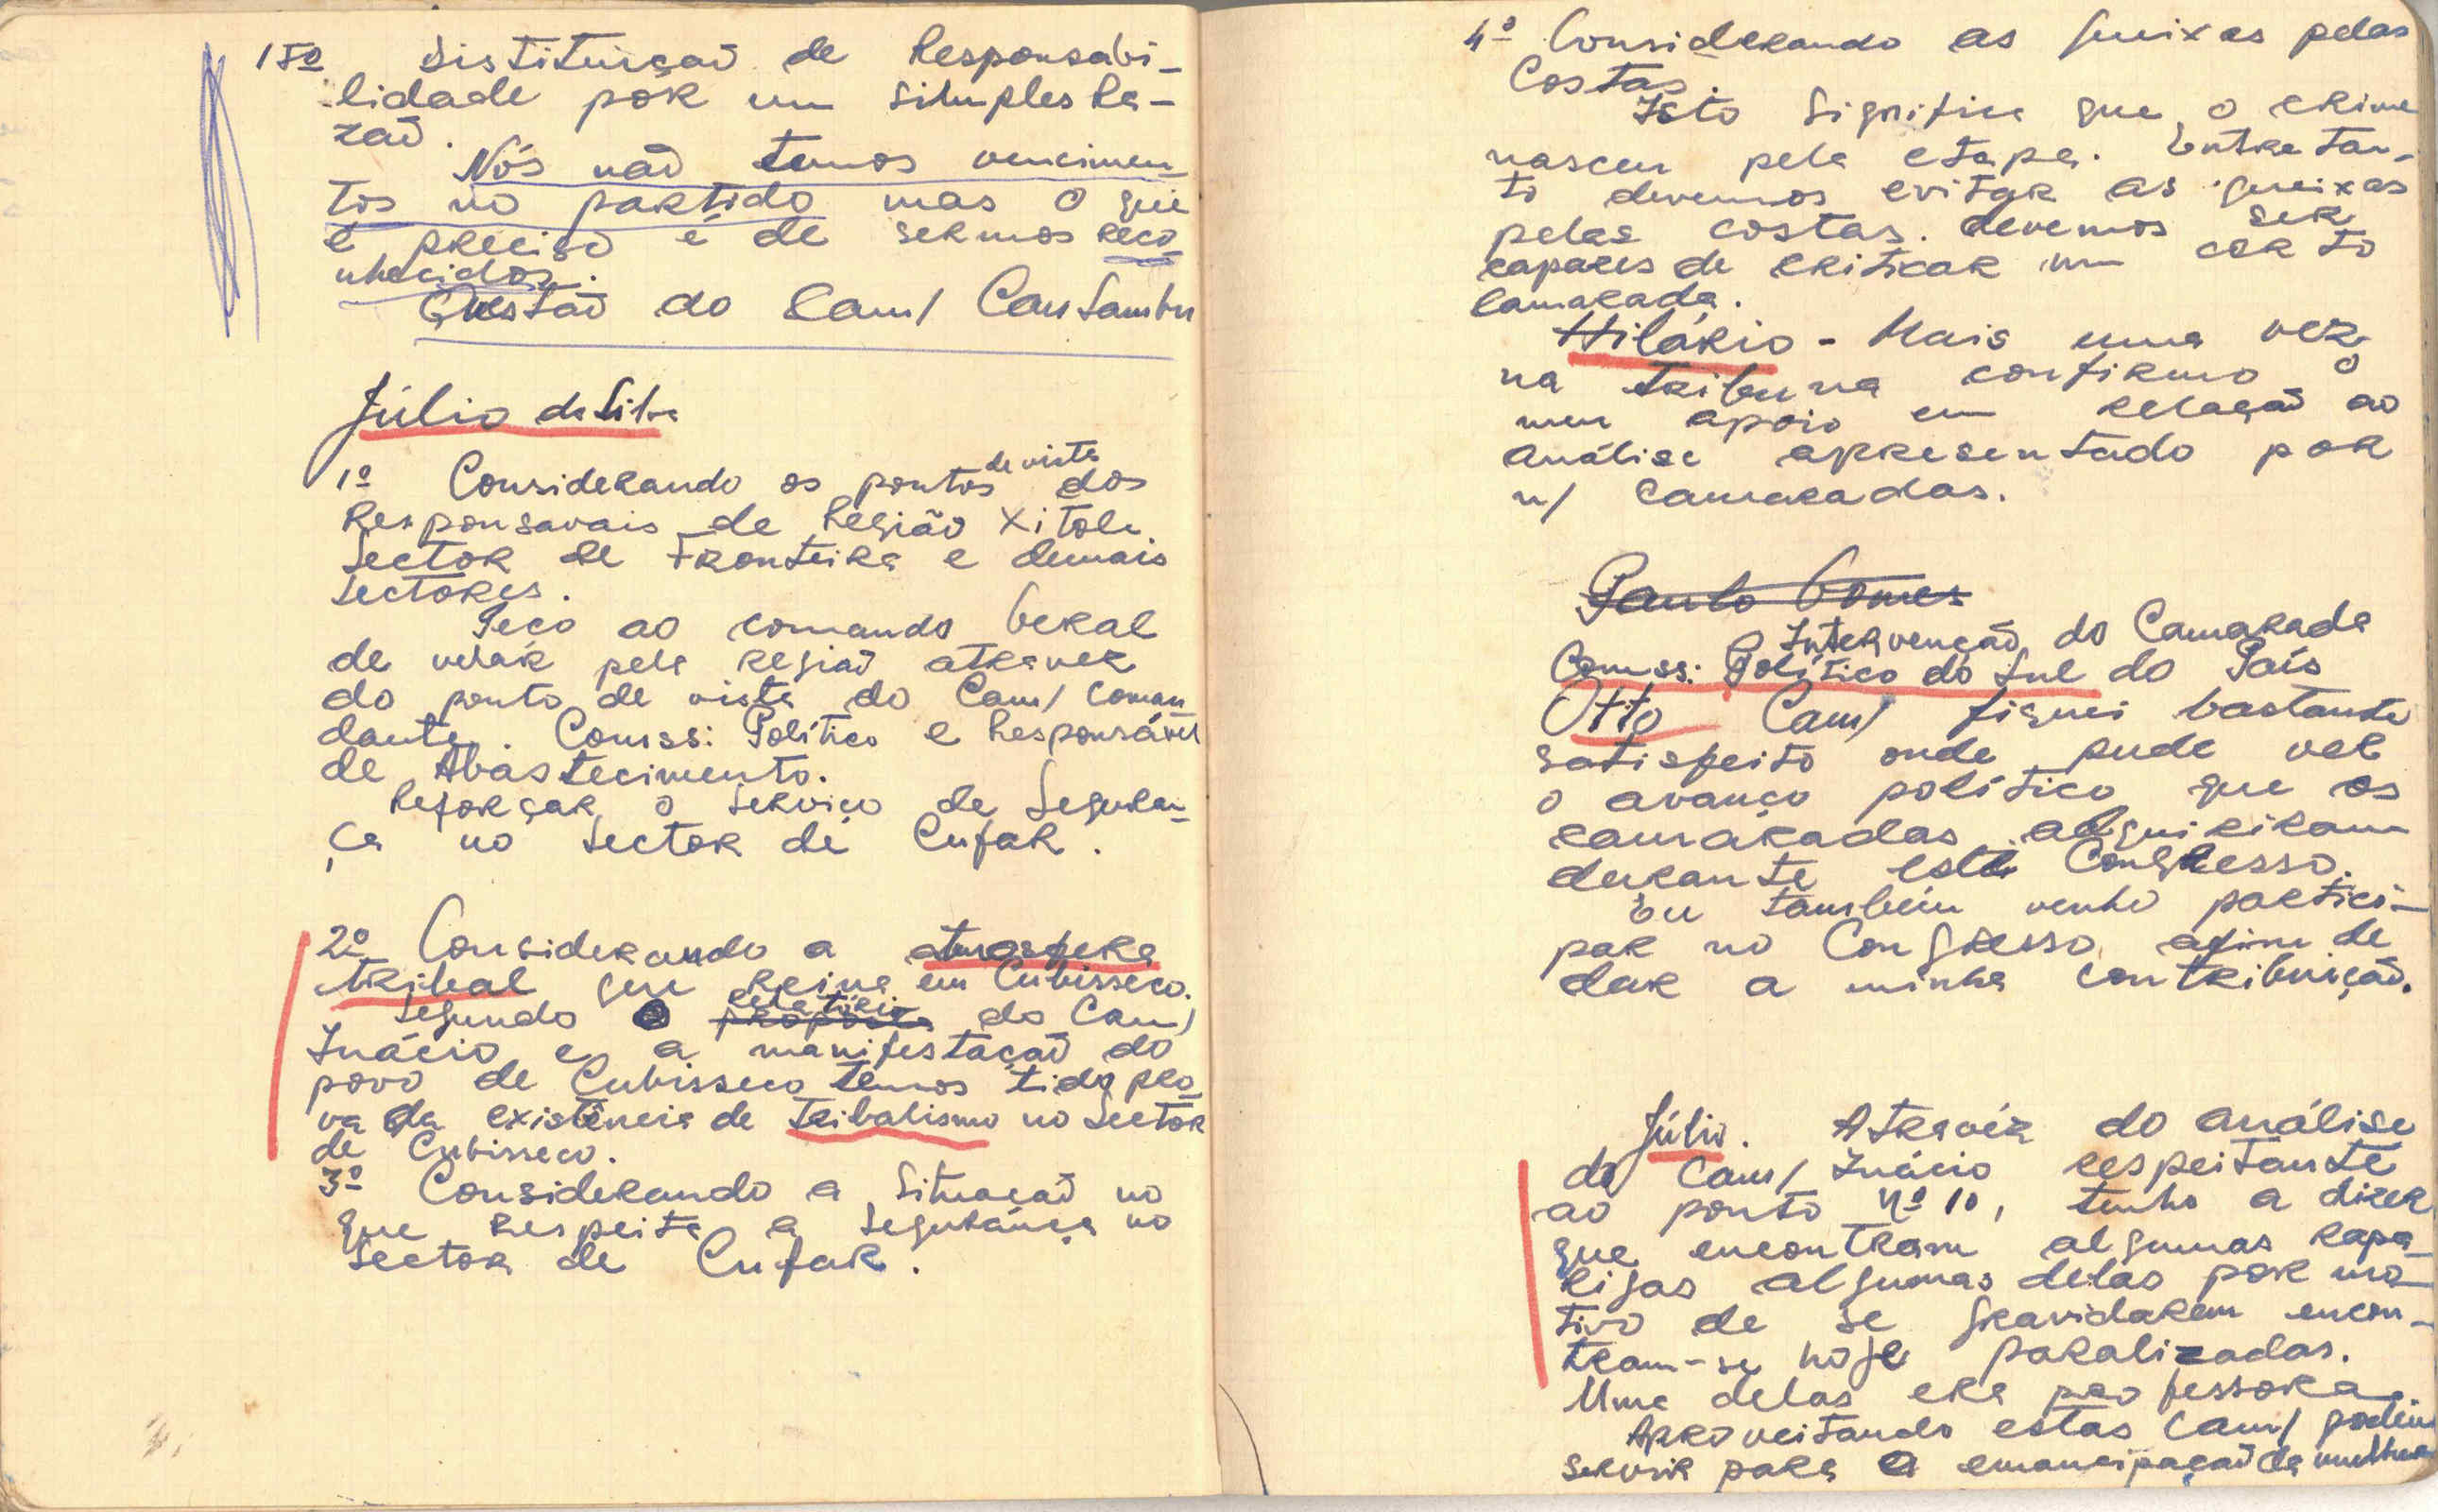 15º Distituiçaõ de Responsabi-
lidade pór um simples Ra-
zaõ.
Nós naõ temos vencimen-
tos no partido mas o que
é preciso é de sermos reco-
nhecidos.
Questaõ do Cam/ Cansambu
Júlio da Silva
1º Considerando os pontos de vista dos
Responsavais de Região Xitole
Sector de Fronteira e demais
Sectores.
Peço ao comando Geral
de velar pela regiaõ atravez
do ponto de vista do Cam/ Coman
dante. Comss: Político e Responsável
de Abastecimento.
Reforçar o Serviço de Seguran-
ça no Sector de Cufar.
2º Considerando a atmosfera
tribal que reina em Cubisseco.
Segundo o proposta relatório do Cam/
Inácio e a manifestaçaõ do
povo de Cubisseco temos tido pro-
va da existência de tribalismo no Sector
de Cubisseco.
3º Considerando a Situaçaõ no
que respeita a Segurança no
Sector de Cufar.
4º Considerando as queixas pelas
Costas.
Isto Significa que o crime
nasceu pela etapa. Entretan-
to devemos evitar as queixas
pelas costas. devemos ser
capazes de criticar um certo
Camarada.
Hilário - Mais uma vez
na tribuna confirmo o
meu apoio em relaçaõ ao
análise apresentado por
n/ Camaradas.
Paulo Gomes
Intervençaõ do Camarada
Comss: Político do Sul do País
Otto Cam/ fiquei bastante
satisfeito onde pude ver
o avanço político que os
camaradas adquiriram
durante este Congresso.
Eu também venho partici-
par no Congresso afim de
dar a minha contribuiçaõ.
Júlio. Atravéz do análise
do Cam/ Inácio respeitante
ao ponto nº 10, tenho a dizer
que encontram algumas rapa-
rigas algumas delas por mo-
tivo de se gravidarem encon-
tram-se hoje paralizadas.
Uma delas era professora.
Aproveitando estas Cam/ podem
servir para a emancipaçaõ da mulher